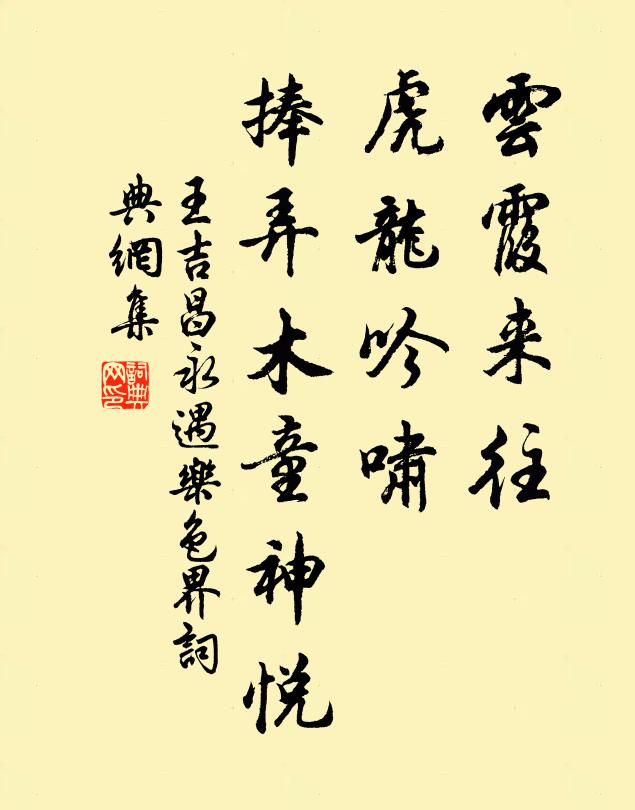 雲霞来往
虎龍吟嘯
捧弄木童神悦
王吉昌永遇樂色界詞
典網集
詞典网印